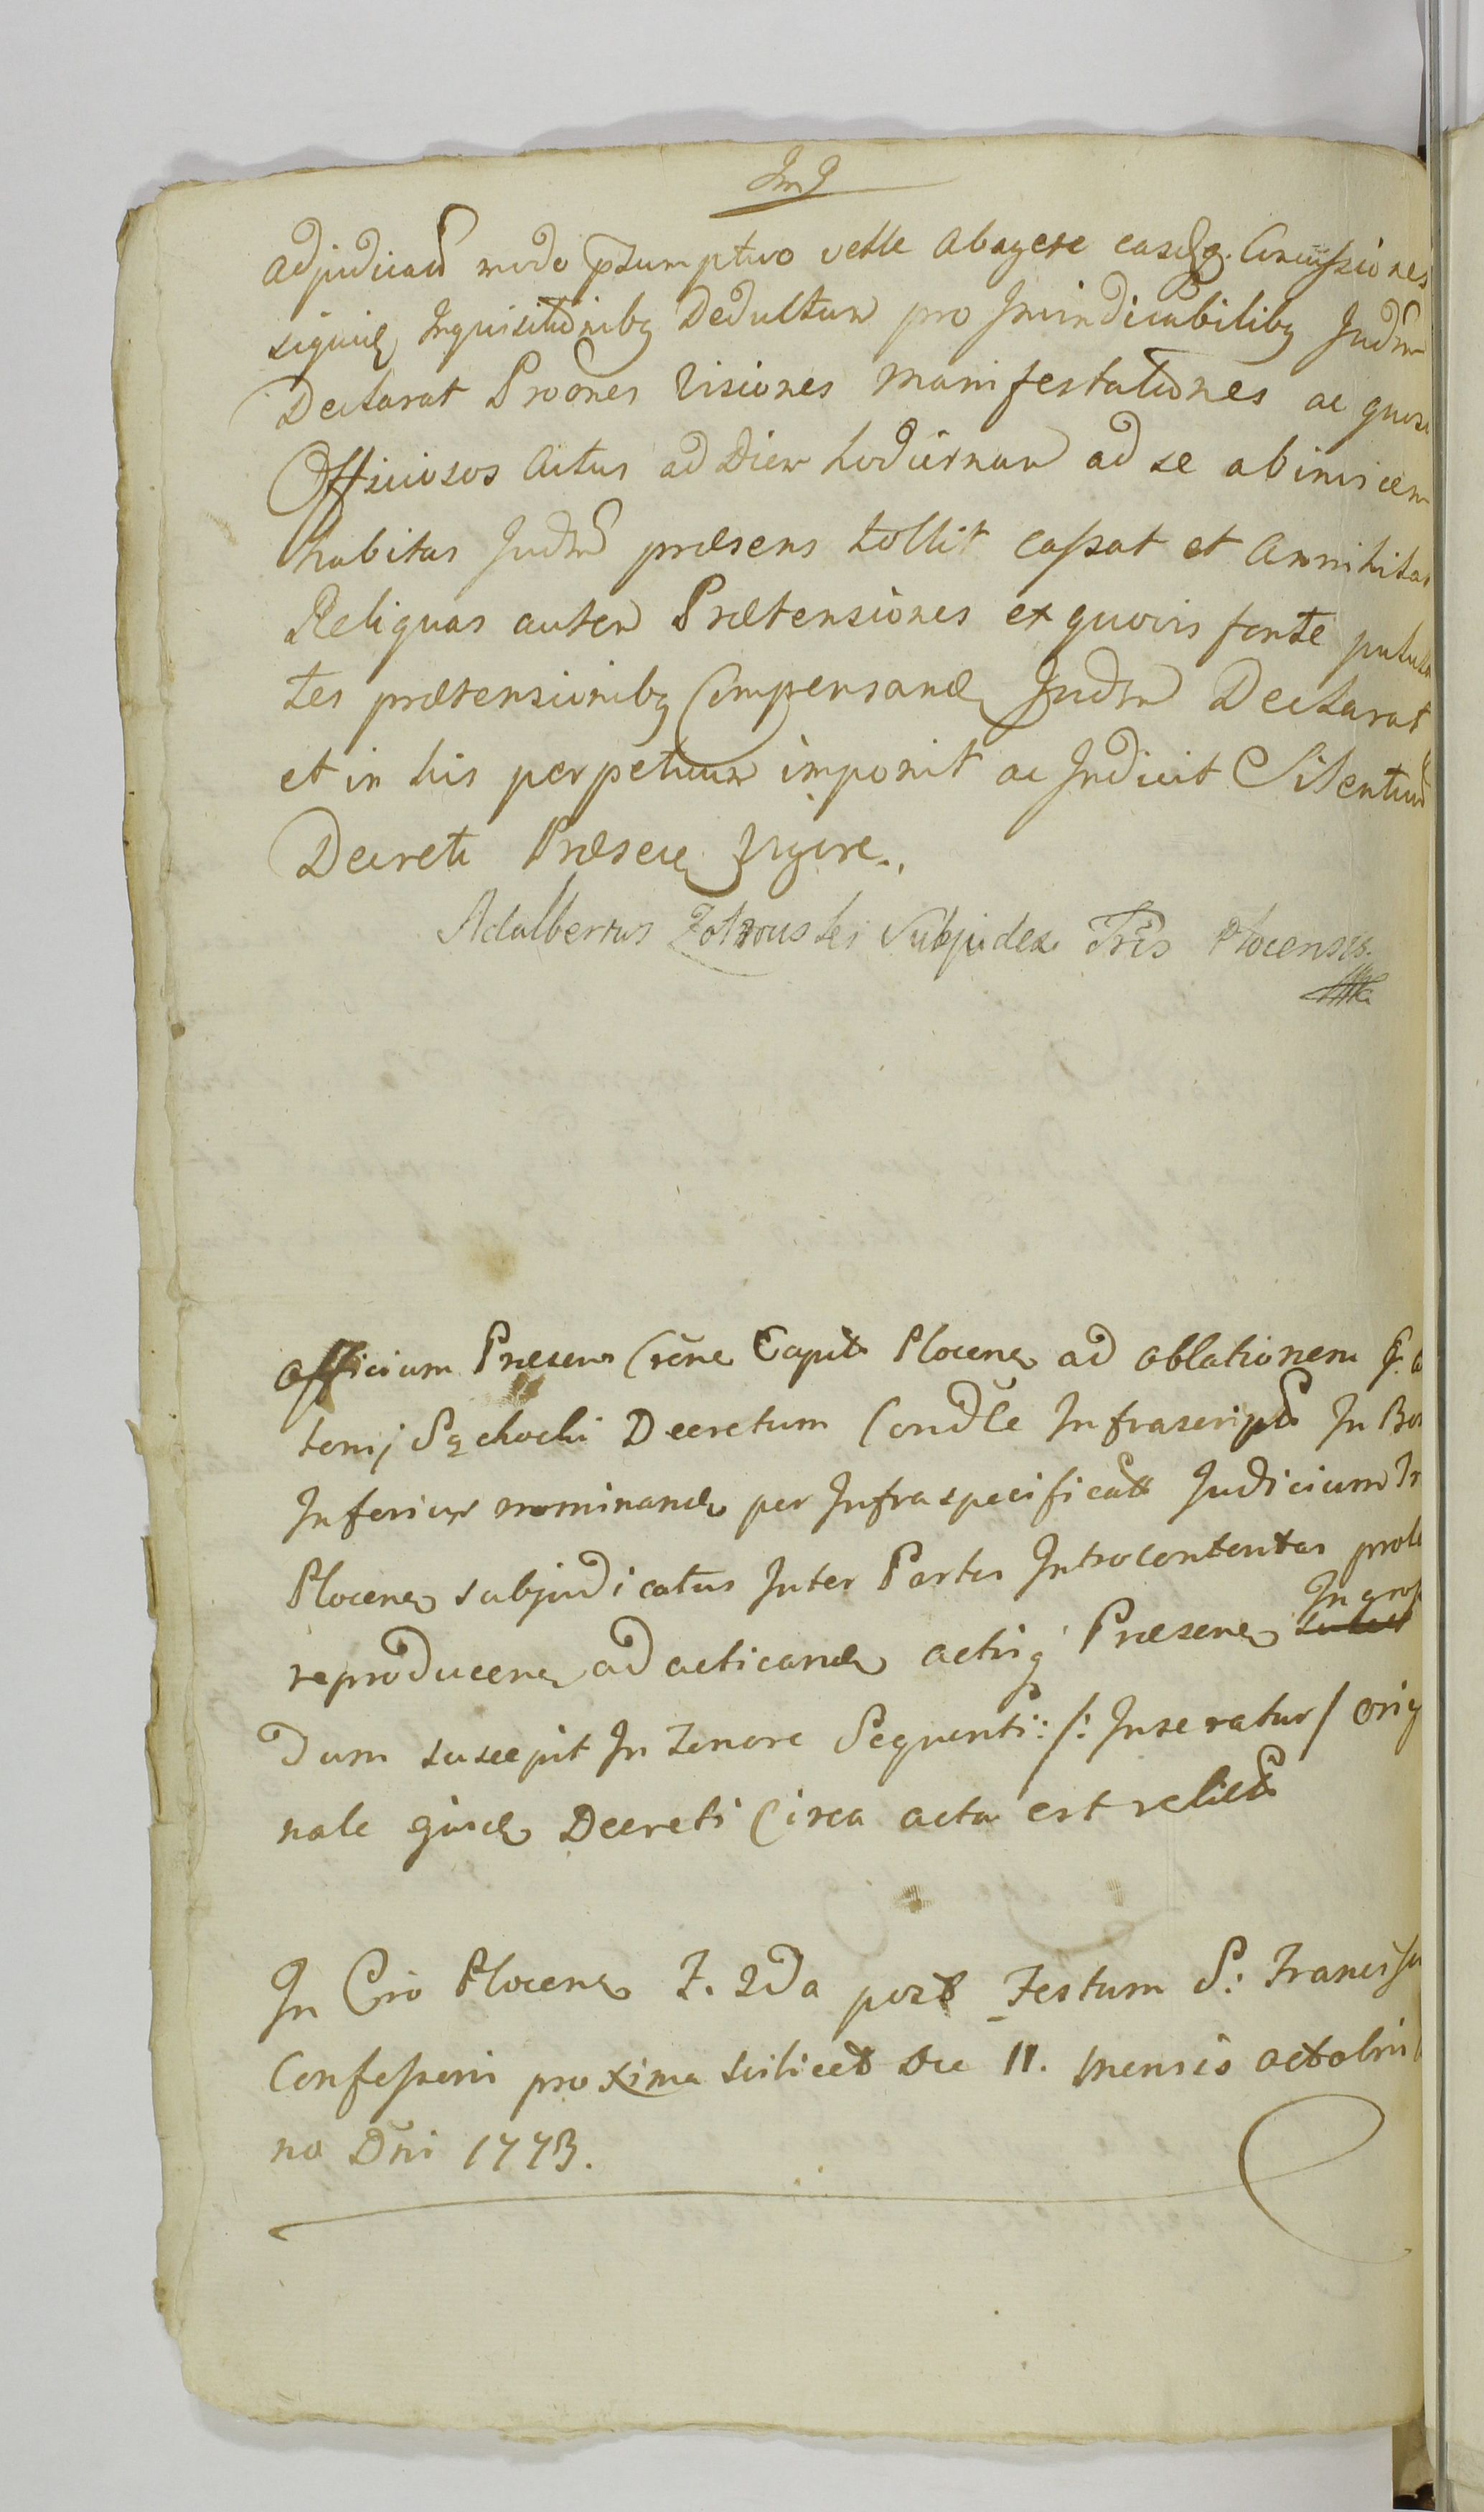 adjudicatu modo præsumptivo velle abagere easdq. Concussiones
Inquisitionibq Deductum pro Invindicabilibq Judm
Declarat Proones Visiones Manifestationes ac quos
Officiosos Actus ad Diem hodiernam ad se abinvicem
habitas Judm præsens tollit cassat et Annihilat
Reliquas autem Prætensiones ex quovis fonte pulula
tes prætensionibq Compensand Judm Declarat
et in his perpetuum imponit ac Indicit Silentium
Decreti Præsen Vigore.
Adalbertus Subjudex Tris Plocensis.
Officium Præsens Crēne Capit Plocens ad oblationem G.
tonij Decretum Condle Infrascript In Bo
Inferius nominand per Infraspecificat Judicium
Plocens subjudicatus Inter Partes Introcontentas prol
reproducens ad acticand actisq Præsens Ingros
dum suscepit In Tenore Sequenti: /: Inseratur / orig
nale ejusd Decreti Circa acta est relict
In Cro Plocens F. 2da post Festum S: Francisci
Confessoris proxima scilicet Die 11. Mensis octobris
no Dñi 1773.